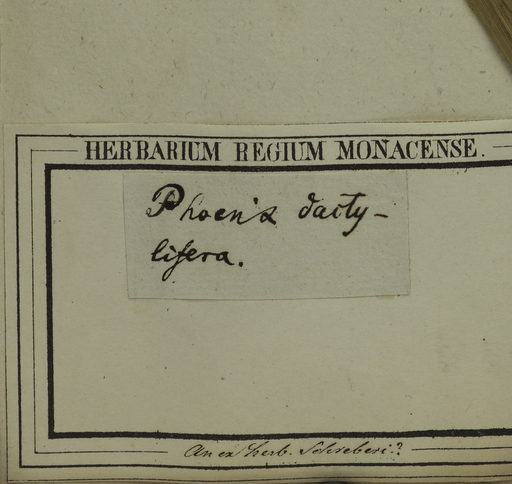 HERBARIUM REGIUM MONACENSE.
Phoenix dacty-
lifera.
An ex herb. Schreberi?